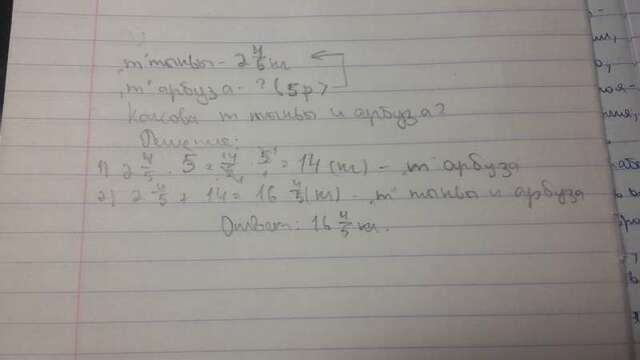 "m" тыквы - 2 4/5 кг
"m" арбуза - ? (5р>
Какова m тыквы и арбуза?
Решение:
1) 2 4/5 · 5 = 14/5 · 5/1 = 14 (кг) - "m" арбуза
2) 2 4/5 + 14 = 16 4/5 (кг) - "m" тыквы и арбуза
Ответ: 16 4/5 кг.